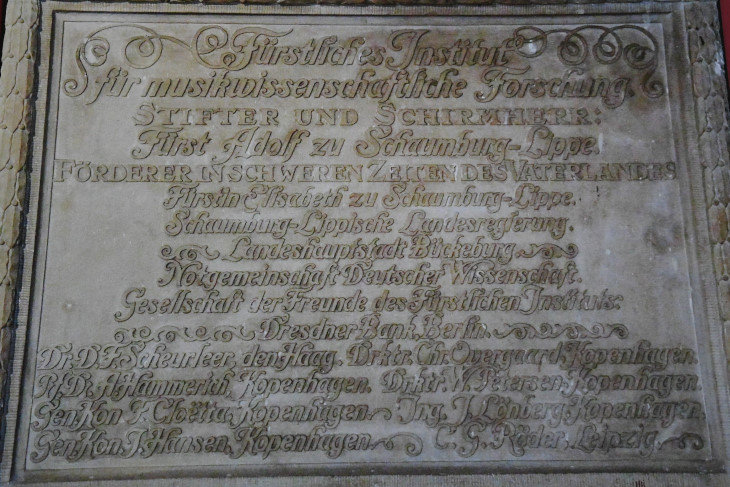 Fürstliches Institut
für musikwissenschaftliche Forschung.
STIFTER UND SCHIRMHERR:
Fürst Adolf zu Schaumburg-Lippe.
FÖRDERER IN SCHWEREN ZEITEN DES VATERLANDES
Fürstin Elisabeth zu Schaumburg-Lippe.
Schaumburg-Lippische Landesregierung.
Landeshauptstadt Bückeburg.
Notgemeinschaft Deutscher Wissenschaft.
Gesellschaft der Freunde des Fürstlichen Instituts:
Dresdner Bank, Berlin.
Dr. D. F. Scheurleer, den Haag. Drktr. Chr. Overgaard, Kopenhagen.
R. Dr. A. Hammerich, Kopenhagen. Drktr. W. Petersen, Kopenhagen.
Gen. Kon. F. Cloëtta, Kopenhagen. Ing. J. Lönberg, Kopenhagen.
Gen. Kon. J. Hansen, Kopenhagen. C. G. Röder, Leipzig.